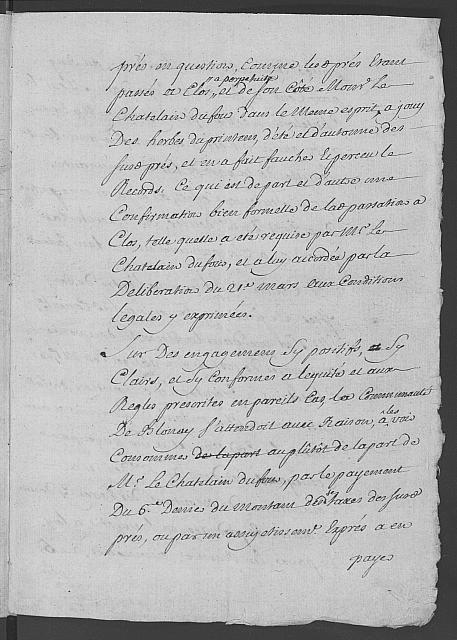 prés en question, comme lesd. prés Etant
passés à Clos, a perpetuité et de son Côté Monsr. Le
Chatelain Dufou dans le Meme esprit, a jouy
Des herbes du printems, d'été et d'automne des
susd. prés, et en a fait faucher & percevu le
Records, Ce qui est de part et d'autre une
Confirmation bien formelle de lad. passation a
Clos, telle quelle a été requise par Mr. Le
Chatelain Dufou, et a luy accordée par la
Deliberation du 21e. mars aux Conditions
legales y exprimées.
Sur Des engagemens Sy positifs, Sy
Clairs, et Sy Conformes a lequité et aux
Regles prescrites en pareils Cas, La Communauté
De Blonay s'attendoit avec Raison, a les voir
Consommés de la part au plûtôt de la part de
Mr. Le Chatelain Dufou, par le payement
Du 6e. Denier du montant des taxes des susd.
prés, ou par un assujetissemt. Exprés a en
payer